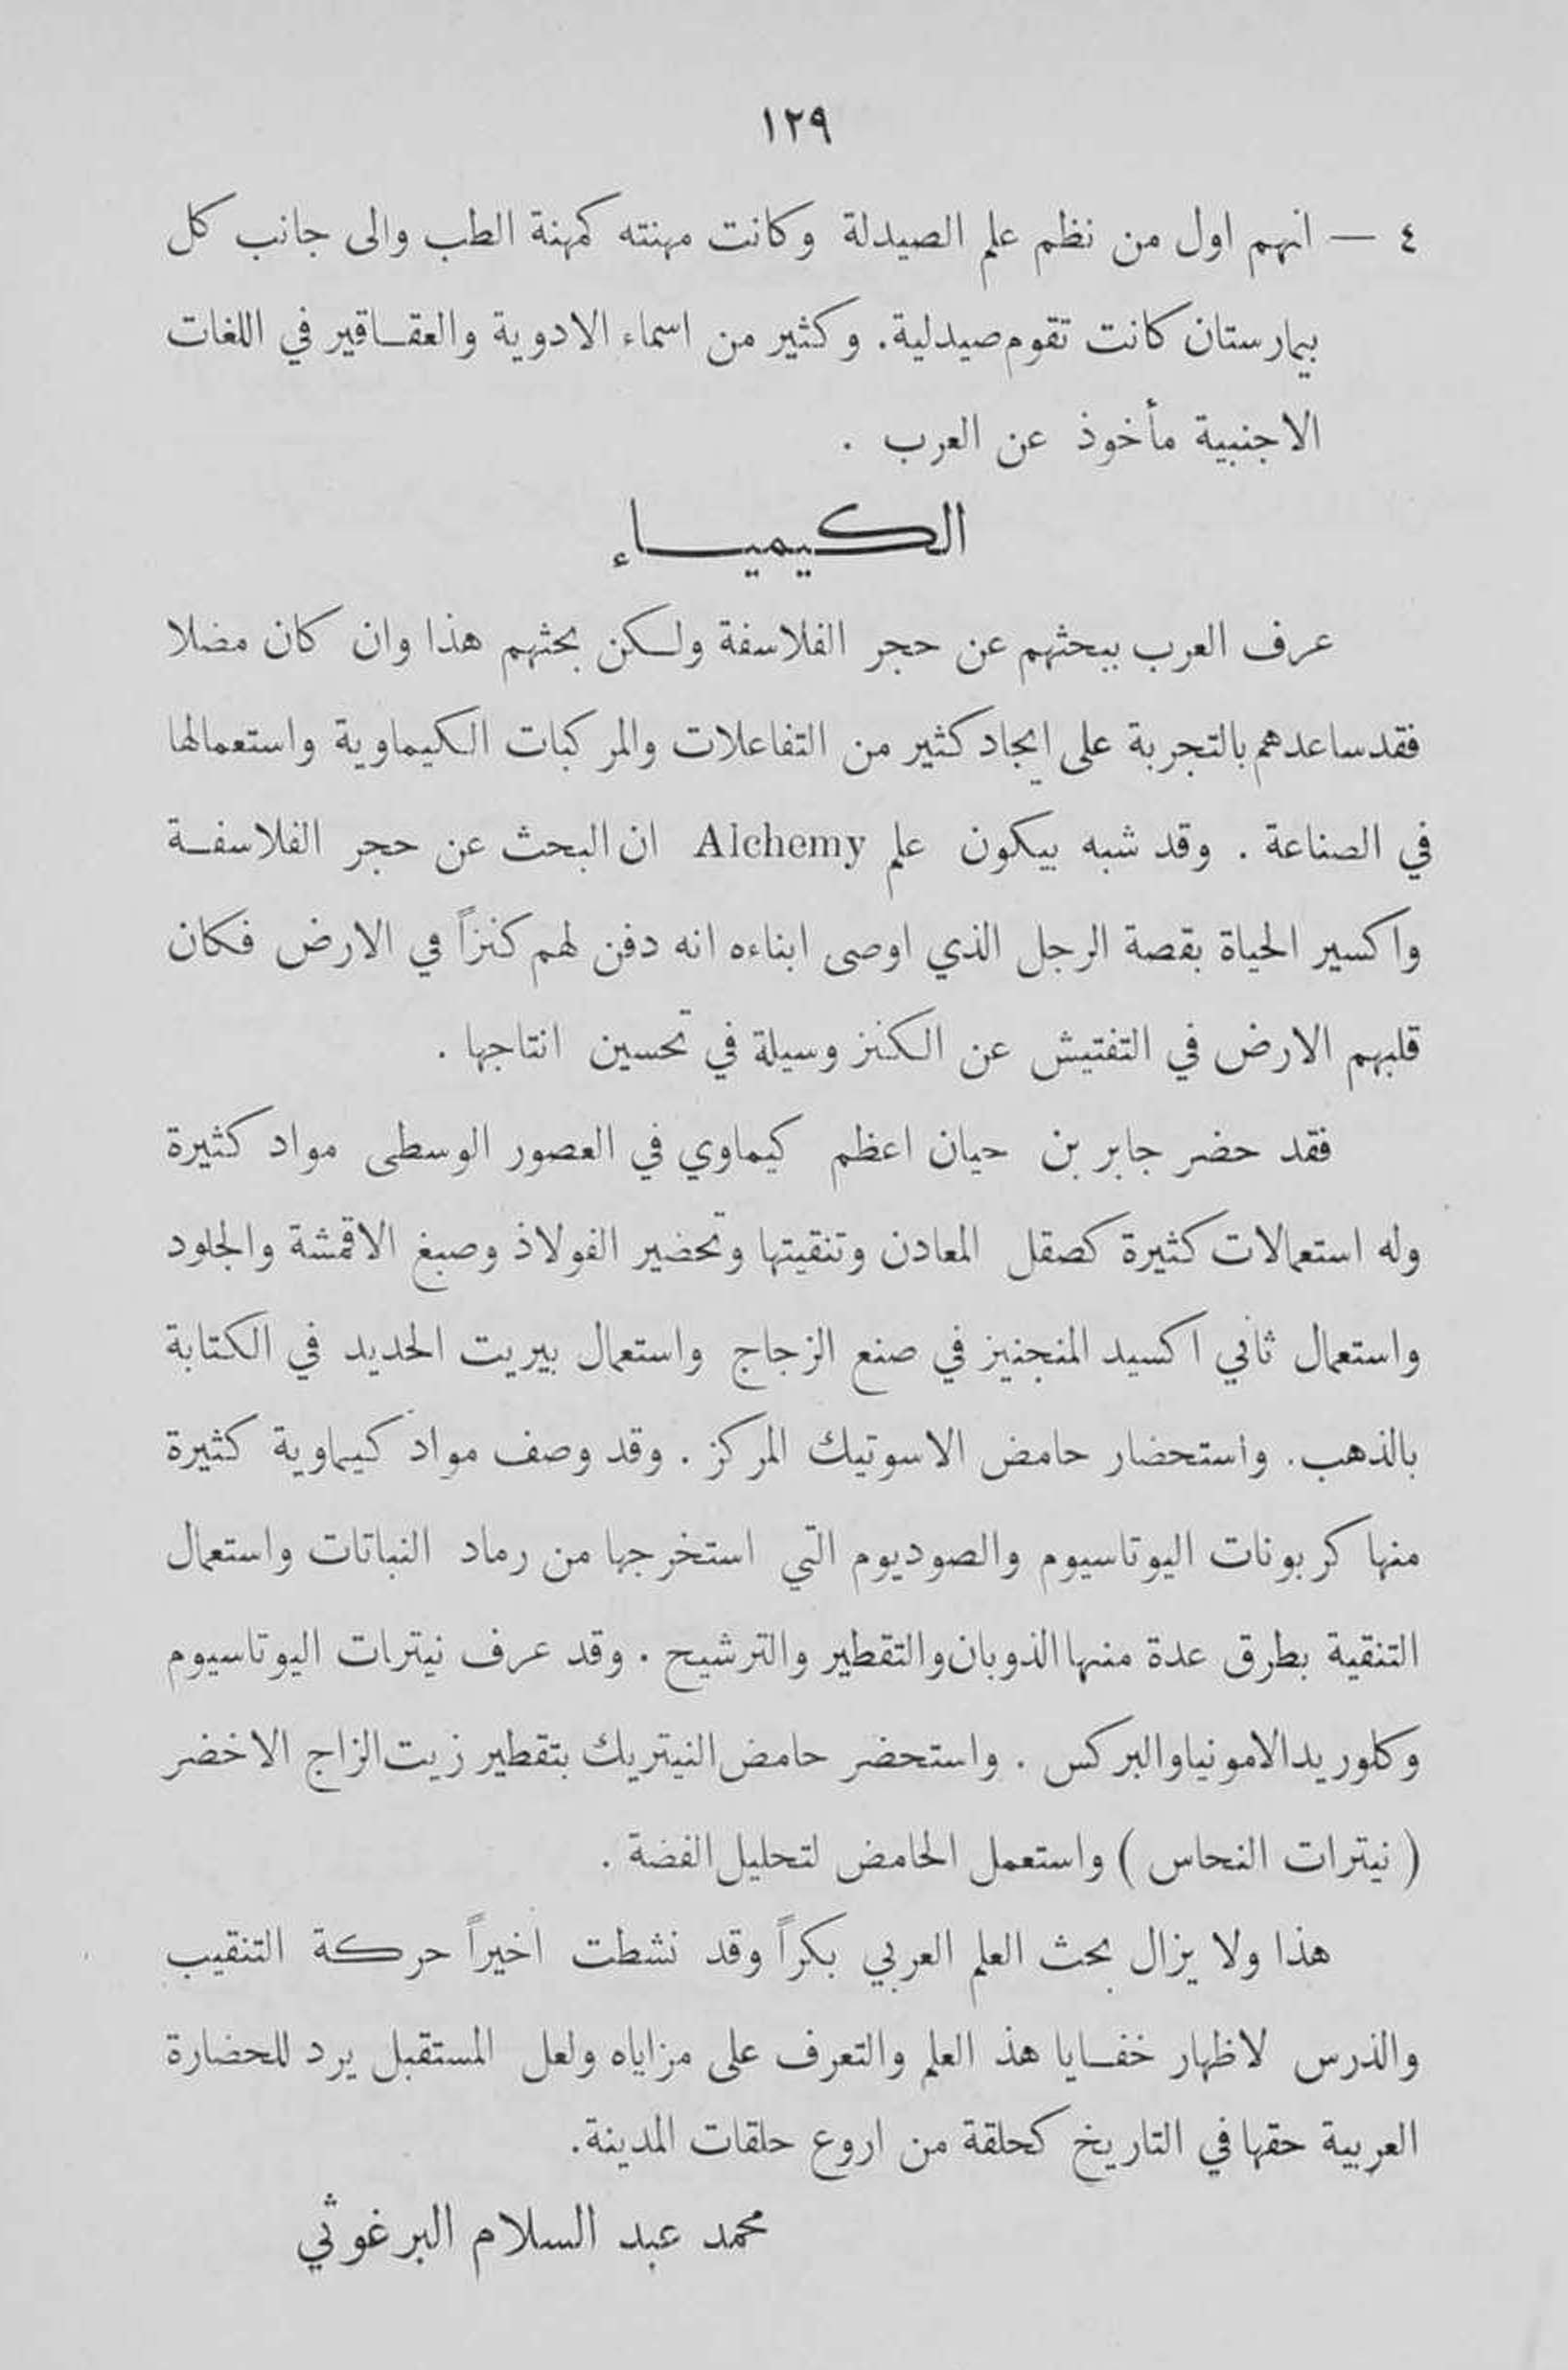 ١٢٩
٤ — انهم اول من نظم علم الصيدلة وكانت مهنته كمهنة الطب والى جانب كل
بيمارستان كانت تقوم صيدلية. وكثير من اسماء الادوية والعقاقير في اللغات
الاجنبية مأخوذ عن العرب .
الكيمياء
عرف العرب ببحثهم عن حجر الفلاسفة ولكن بحثهم هذا وان كان مضلا
فقد ساعدهم بالتجربة على ايجاد كثير من التفاعلات والمركبات الكيماوية واستعمالها
في الصناعة . وقد شبه بيكون علم Alchemy ان البحث عن حجر الفلاسفة
واكسير الحياة بقصة الرجل الذي اوصى ابناءه انه دفن لهم كنزاً في الارض فكان
قلبهم الارض في التفتيش عن الكنز وسيلة في تحسين انتاجها .
فقد حضر جابر بن حيان اعظم كيماوي في العصور الوسطى مواد كثيرة
وله استعمالات كثيرة كصقل المعادن وتنقيتها وتحضير الفولاذ وصبغ الاقمشة والجلود
واستعمال ثاني اكسيد المنجنيز في صنع الزجاج واستعمال بيريت الحديد في الكتابة
بالذهب. واستحضار حامض الاسوتيك المركز . وقد وصف مواد كيماوية كثيرة
منها كربونات اليوتاسيوم والصوديوم التي استخرجها من رماد النباتات واستعمال
التنقية بطرق عدة منها الذوبان والتقطير والترشيح . وقد عرف نيترات اليوتاسيوم
وكلوريد الامونيا والبركس . واستحضر حامض النيتريك بتقطير زيت الزاج الاخضر
( نيترات النحاس ) واستعمل الحامض لتحليل الفضة .
هذا ولا يزال بحث العلم العربي بكراً وقد نشطت اخيراً حركة التنقيب
والدرس لاظهار خفايا هذ العلم والتعرف على مزاياه ولعل المستقبل يرد للحضارة
العربية حقها في التاريخ كحلقة من اروع حلقات المدينة.
محمد عبد السلام البرغوثي